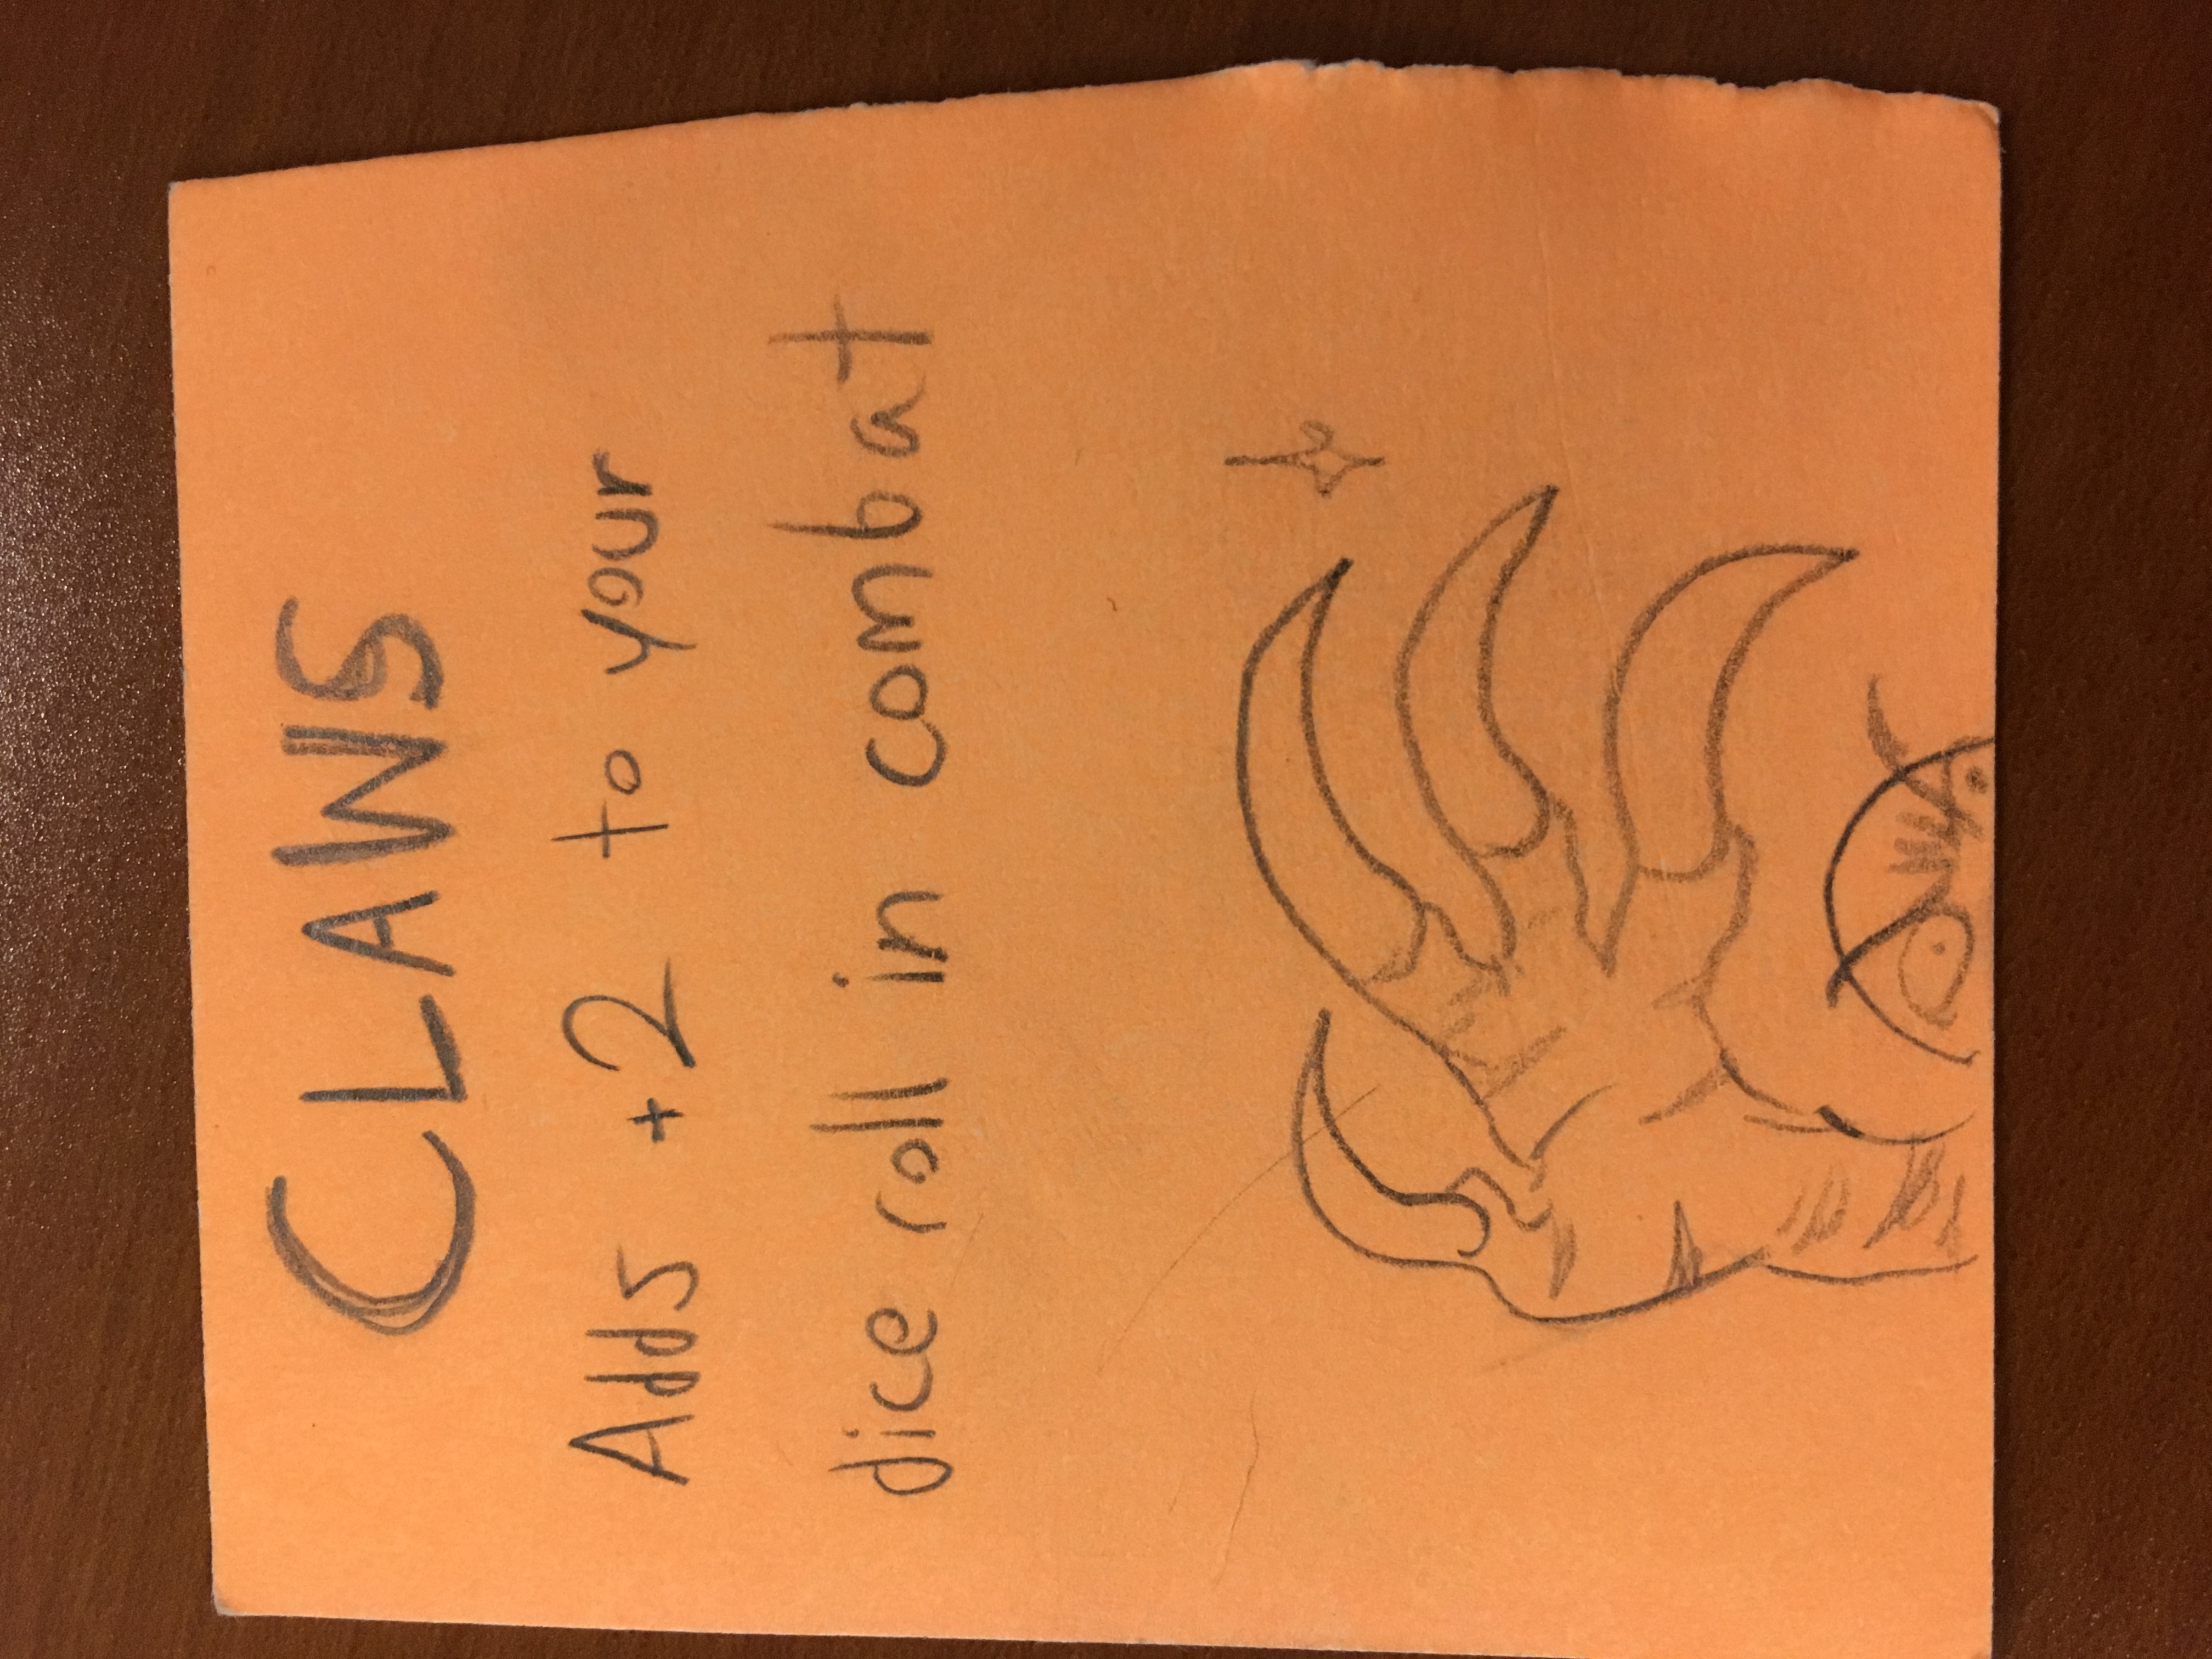 CLAWS
Adds +2 to your
dice roll in combat